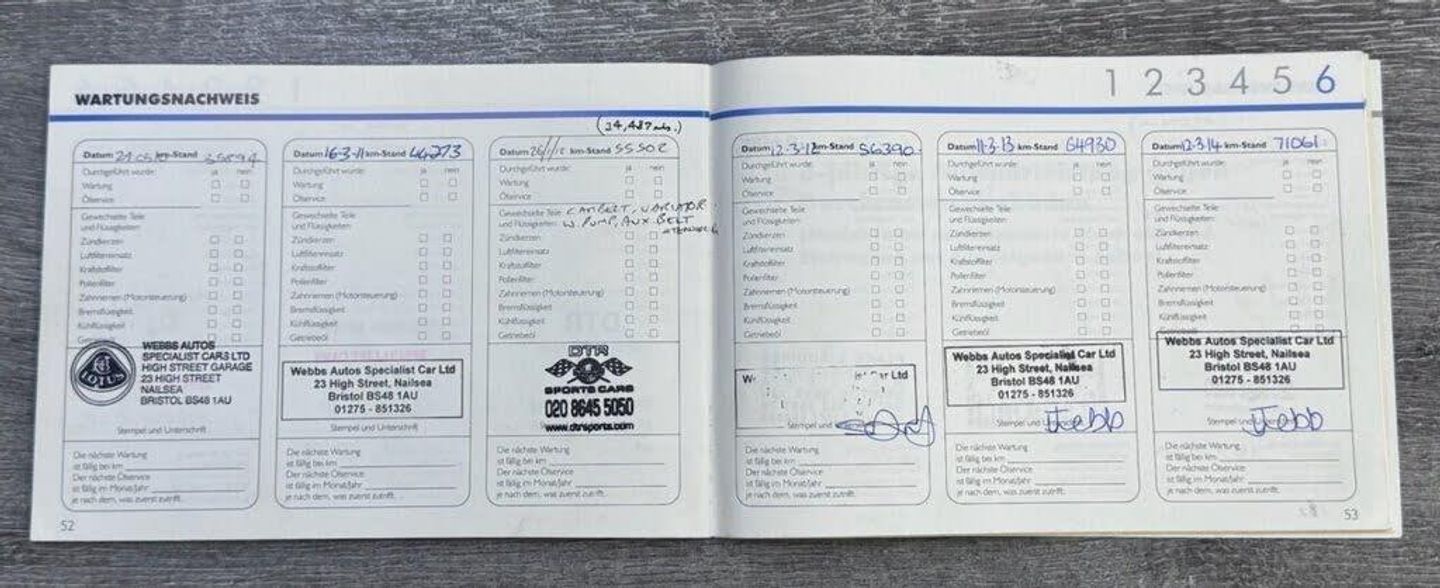 WARTUNGSNACHWEIS
1 2 3 4 5 6
Datum km-Stand
Durchgeführt wurde: ja nein
Wartung
Ölservice
Gewechselte Teile
und Flüssigkeiten:
Zündkerzen
Luftfiltereinsatz
Kraftstofffilter
Pollenfilter
Zahnriemen (Motorsteuerung)
Bremsflüssigkeit
Kühlflüssigkeit
LOTUS
WEBBS AUTOS
SPECIALIST CARS LTD
HIGH STREET GARAGE
23 HIGH STREET
NAILSEA
BRISTOL BS48 1AU
Stempel und Unterschrift
Die nächste Wartung
ist fällig bei km
Der nächste Ölservice
ist fällig im Monat/Jahr
je nach dem, was zuerst zutrifft.
52
Datum 16-3-11 km-Stand
Durchgeführt wurde: ja nein
Wartung
Ölservice
Gewechselte Teile
und Flüssigkeiten:
Zündkerzen
Luftfiltereinsatz
Kraftstofffilter
Pollenfilter
Zahnriemen (Motorsteuerung)
Bremsflüssigkeit
Kühlflüssigkeit
Getriebeöl
Webbs Autos Specialist Car Ltd
23 High Street, Nailsea
Bristol BS48 1AU
01275 - 851326
Stempel und Unterschrift
Die nächste Wartung
ist fällig bei km
Der nächste Ölservice
ist fällig im Monat/Jahr
je nach dem, was zuerst zutrifft.
Datum km-Stand 55502
Durchgeführt wurde: ja nein
Wartung
Ölservice
Gewechselte Teile CAMBELT, VARIATOR
und Flüssigkeiten: W. PUMP, AUX. BELT
Zündkerzen
Luftfiltereinsatz
Kraftstofffilter
Pollenfilter
Zahnriemen (Motorsteuerung)
Bremsflüssigkeit
Kühlflüssigkeit
Getriebeöl
DTR
SPORTS CARS
020 8645 5050
www.dtrsports.com
Die nächste Wartung
ist fällig bei km
Der nächste Ölservice
ist fällig im Monat/Jahr
je nach dem, was zuerst zutrifft.
Datum 12.3.12 km-Stand 56390
Durchgeführt wurde: ja nein
Wartung
Ölservice
Gewechselte Teile
und Flüssigkeiten:
Zündkerzen
Luftfiltereinsatz
Kraftstofffilter
Pollenfilter
Zahnriemen (Motorsteuerung)
Bremsflüssigkeit
Kühlflüssigkeit
Getriebeöl
Car Ltd
Stempel und
Die nächste Wartung
ist fällig bei km
Der nächste Ölservice
ist fällig im Monat/Jahr
je nach dem, was zuerst zutrifft.
Datum 11.3.13 km-Stand 64930
Durchgeführt wurde: ja nein
Wartung
Ölservice
Gewechselte Teile
und Flüssigkeiten:
Zündkerzen
Luftfiltereinsatz
Kraftstofffilter
Pollenfilter
Zahnriemen (Motorsteuerung)
Bremsflüssigkeit
Kühlflüssigkeit
Getriebeöl
Webbs Autos Specialist Car Ltd
23 High Street, Nailsea
Bristol BS48 1AU
01275 - 851326
Stempel und
Die nächste Wartung
ist fällig bei km
Der nächste Ölservice
ist fällig im Monat/Jahr
je nach dem, was zuerst zutrifft.
Datum 12.3.14 km-Stand 71061
Durchgeführt wurde: ja nein
Wartung
Ölservice
Gewechselte Teile
und Flüssigkeiten:
Zündkerzen
Luftfiltereinsatz
Kraftstofffilter
Pollenfilter
Zahnriemen (Motorsteuerung)
Bremsflüssigkeit
Kühlflüssigkeit
Webbs Autos Specialist Car Ltd
23 High Street, Nailsea
Bristol BS48 1AU
01275 - 851326
Stempel
Die nächste Wartung
ist fällig bei km
Der nächste Ölservice
ist fällig im Monat/Jahr
je nach dem, was zuerst zutrifft.
53